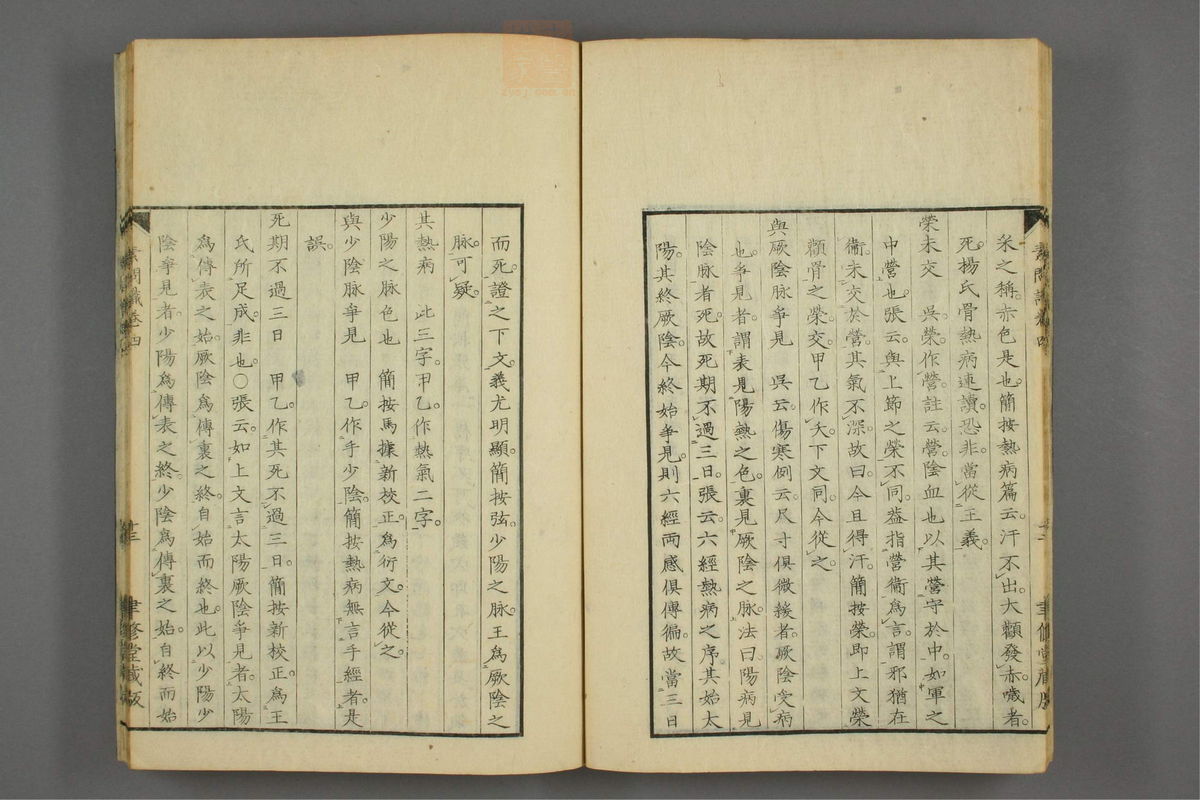 采之稱。赤色是也。簡按熱病篇云。汗不出。大顴發赤。噦者。
死。楊氏骨熱病連讀。恐非。當從王義。
榮未交　吳。榮作營。註云。營陰血也。以其營守於中。如軍之
中營也。張云。與上節之榮不同。蓋指營衞爲言。謂邪猶在
衞。未交於營。其氣不深。故曰今且得汗。簡按榮。即上文榮
顴骨之榮。交。甲乙作夭。下文同。今從之。
與厥陰脉爭見　吳云。傷寒例云。尺寸俱微緩者。厥陰受病
也。爭見者。謂表見陽熱之色。裏見厥陰之脉。法曰陽病見
陰脉者死。故死期不過三日。張云。六經熱病之序。其始太
陽。其終厥陰。今終始爭見。則六經兩感俱傳徧。故當三日
而死。證之下文。義尤明顯。簡按弦。少陽之脉。王爲厥陰之
脉。可疑。
其熱病　此三字。甲乙。作熱氣二字。
少陽之脉色也　簡按馬據新校正。爲衍文。今從之。
與少陰脉爭見　甲乙。作手少陰。簡按熱病無言手經者。是
誤。
死期不過三日　甲乙。作其死不過三日。簡按新校正。爲王
氏所足成。非也。○張云。如上文言太陽厥陰爭見者。太陽
爲傳表之始。厥陰爲傳裏之終。自始而終也。此以少陽少
陰爭見者。少陽爲傳表之終。少陰爲傳裏之始。自終而始
素問識卷四
聿修堂藏版